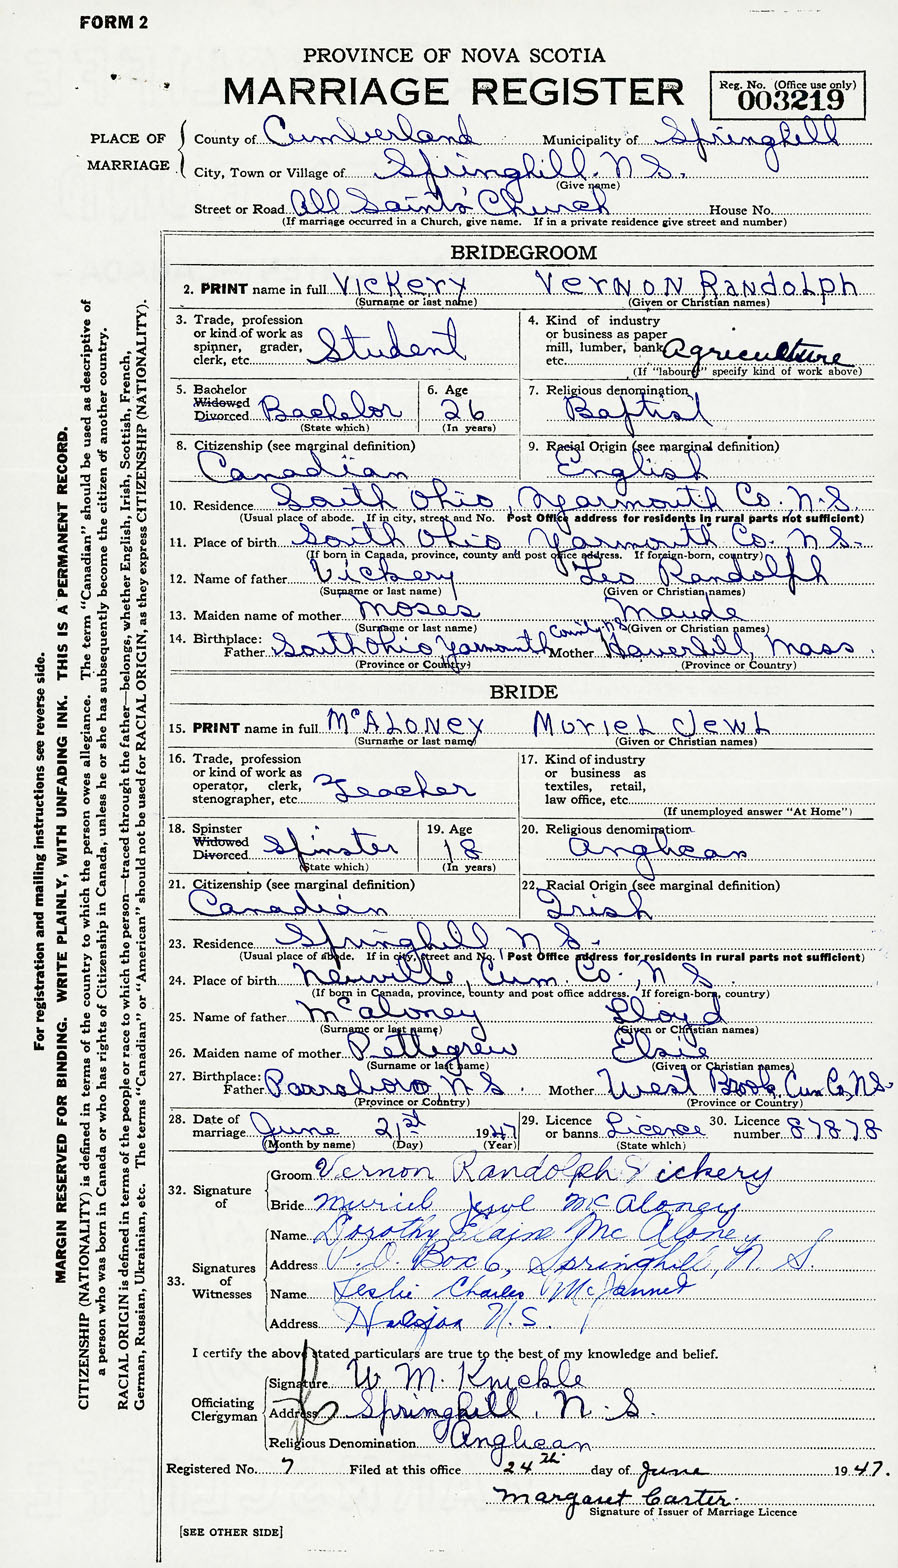 FORM 2
PROVINCE OF NOVA SCOTIA
MARRIAGE REGISTER
Reg. No. (Office use only)
003219
PLACE OF MARRIAGE
County of Cumberland Municipality of Springhill
City, Town or Village of Springhill. N S.
(Give name)
Street or Road All Saints' Church House No.
(If marriage occurred in a Church, give name. If in a private residence give street and number)
BRIDEGROOM
2. PRINT name in full Vickery Vernon Randolph
(Surname or last name) (Given or Christian names)
3. Trade, profession or kind of work as spinner, grader, clerk, etc. Student
4. Kind of industry or business as paper mill, lumber, bank etc. Agriculture
(If "labourer" specify kind of work above)
5. Bachelor Widowed Divorced Bachelor
(State which)
6. Age 26
(In years)
7. Religious denomination Baptist
8. Citizenship (see marginal definition) Canadian
9. Racial Origin (see marginal definition) English
10. Residence South Ohio, Yarmouth Co. N.S.
(Usual place of abode. If in city, street and No. Post Office address for residents in rural parts not sufficient)
11. Place of birth South Ohio Yarmouth Co. N S.
(If born in Canada, province, county and post office address. If foreign-born, country)
12. Name of father Vickery Leo Randolph
(Surname or last name) (Given or Christian names)
13. Maiden name of mother Moses Maude
(Surname or last name) (Given or Christian names)
14. Birthplace: Father South Ohio Yarmouth County N S Mother Haverhill, Mass
(Province or Country) (Province or Country)
BRIDE
15. PRINT name in full McAloney Muriel Jewl
(Surname or last name) (Given or Christian names)
16. Trade, profession or kind of work as operator, clerk, stenographer, etc. Teacher
17. Kind of industry or business as textiles, retail, law office, etc.
(If unemployed answer "At Home")
18. Spinster Widowed Divorced Spinster
(State which)
19. Age 18
(In years)
20. Religious denomination Anglican
21. Citizenship (see marginal definition) Canadian
22. Racial Origin (see marginal definition) Irish
23. Residence Springhill N S.
(Usual place of abode. If in city, street and No. Post Office address for residents in rural parts not sufficient)
24. Place of birth Newville, Cum. Co., N S.
(If born in Canada, province, county and post office address. If foreign-born, country)
25. Name of father McAloney Lloyd
(Surname or last name) (Given or Christian names)
26. Maiden name of mother Pettigrew Elsie
(Surname or last name) (Given or Christian names)
27. Birthplace: Father Parrsboro, N S. Mother West Brook, Cum Co, N S.
(Province or Country) (Province or Country)
28. Date of marriage June 21st 1947
(Month by name) (Day) (Year)
29. Licence or banns Licence
(State which)
30. Licence number 87878
32. Signature of
Groom Vernon Randolph Vickery
Bride Muriel Jewl McAloney
33. Signatures of Witnesses
Name Dorothy Elaine McAloney
Address P.O. Box 6, Springhill, N. S.
Name Leslie Charles McJannet
Address N.S.
I certify the above stated particulars are true to the best of my knowledge and belief.
Officiating Clergyman
Signature W. M. Knickle
Address Springhill, N. S.
Religious Denomination Anglican
Registered No. 7 Filed at this office 24th day of June 1947.
Margaret Carter.
Signature of Issuer of Marriage Licence
[SEE OTHER SIDE]
For registration and mailing instructions see reverse side.
MARGIN RESERVED FOR BINDING. WRITE PLAINLY, WITH UNFADING INK. THIS IS A PERMANENT RECORD.
CITIZENSHIP (NATIONALITY) is defined in terms of the country to which the person owes allegiance. The term "Canadian" should be used as descriptive of
a person who was born in Canada or who has rights of Citizenship in Canada, unless he or she has subsequently become the citizen of another country.
RACIAL ORIGIN is defined in terms of the people or race to which the person—traced through the father—belongs, whether English, Irish, Scottish, French,
German, Russian, Ukrainian, etc. The terms "Canadian" or "American" should not be used for RACIAL ORIGIN, as they express CITIZENSHIP (NATIONALITY).